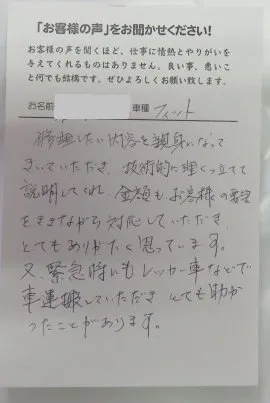 「お客様の声」をお聞かせください!
お客様の声を聞くほど、仕事に情熱とやりがいを
与えてくれるものはありません。良い事、悪いこ
と何でも結構です。ぜひよろしくお願い致します。
お名前 車種 フィット
修理したい内容を親身になって
きいていただき、技術的に理くつ立てて
説明してくれ、金額もお客様の要望
をききながら対応していただき、
とてもありがたく思っています。
又、緊急時にもレッカー車などで
車運搬していただき とても助か
ったことがあります。